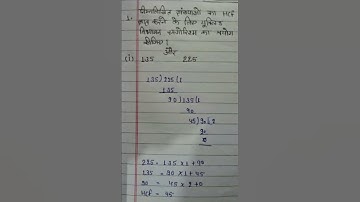 1. निम्नलिखित संख्याओं का HCF
ज्ञात करने के लिए यूक्लिड
विभाजन एल्गोरिथम का प्रयोग
कीजिए।
और
(i) 135 225
135)225(1
135
90)135(1
90
45)90(2
90
0
225 = 135 × 1 + 90
135 = 90 × 1 + 45
90 = 45 × 2 + 0
HCF = 45